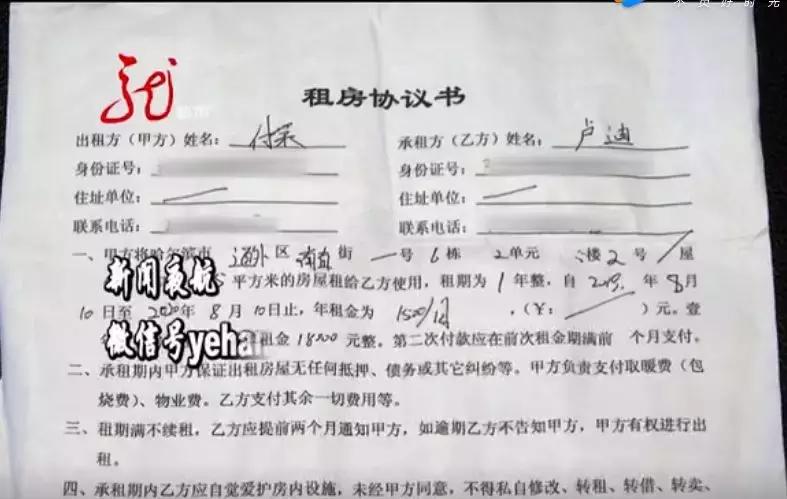 租房协议书
出租方（甲方）姓名： 承租方（乙方）姓名：卢迪
身份证号： 身份证号：
住址单位： 住址单位：
联系电话： 联系电话：
一、甲方将哈尔滨市道外区 街 号6栋2单元 楼2号 屋
新闻夜航 平方米的房屋租给乙方使用，租期为1年整，自2019年8月
10日至2020年8月10日止，年租金为1500/月，（￥： ）元。壹
微信号yeha 租金18000元整。第二次付款应在前次租金期满前 个月支付。
二、承租期内甲方保证出租房屋无任何抵押、债务或其它纠纷等。甲方负责支付取暖费（包
烧费）、物业费。乙方支付其余一切费用等。
三、租期满不续租，乙方应提前两个月通知甲方，如逾期乙方不告知甲方，甲方有权进行出
租。
四、承租期内乙方应自觉爱护房内设施，未经甲方同意，不得私自修改、转租、转借、转卖、